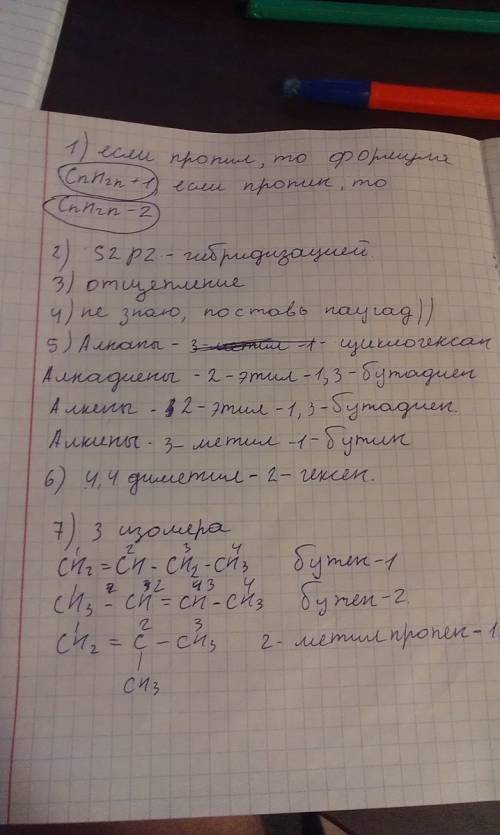 1) если пропил, то формула
CnH2n+1, если пропин, то
CnH2n-2
2) S2p2 - гибридизацией.
3) отщепление
4) не знаю, поставь наугад))
5) Алканы - 3-метил-1- циклогексан
Алкадиены - 2-этил-1,3-бутадиен
Алкены - 2-этил-1,3-бутадиен.
Алкины - 3-метил-1-бутин
6) 4,4 диметил-2-гексен.
7) 3 изомера
1 2 3 4
CH2=CH-CH2-CH3 бутен-1
1 2 3 4
CH3-CH=CH-CH3 бутен-2
1 2 3
CH2=C-CH3 2-метилпропен-1
|
CH3